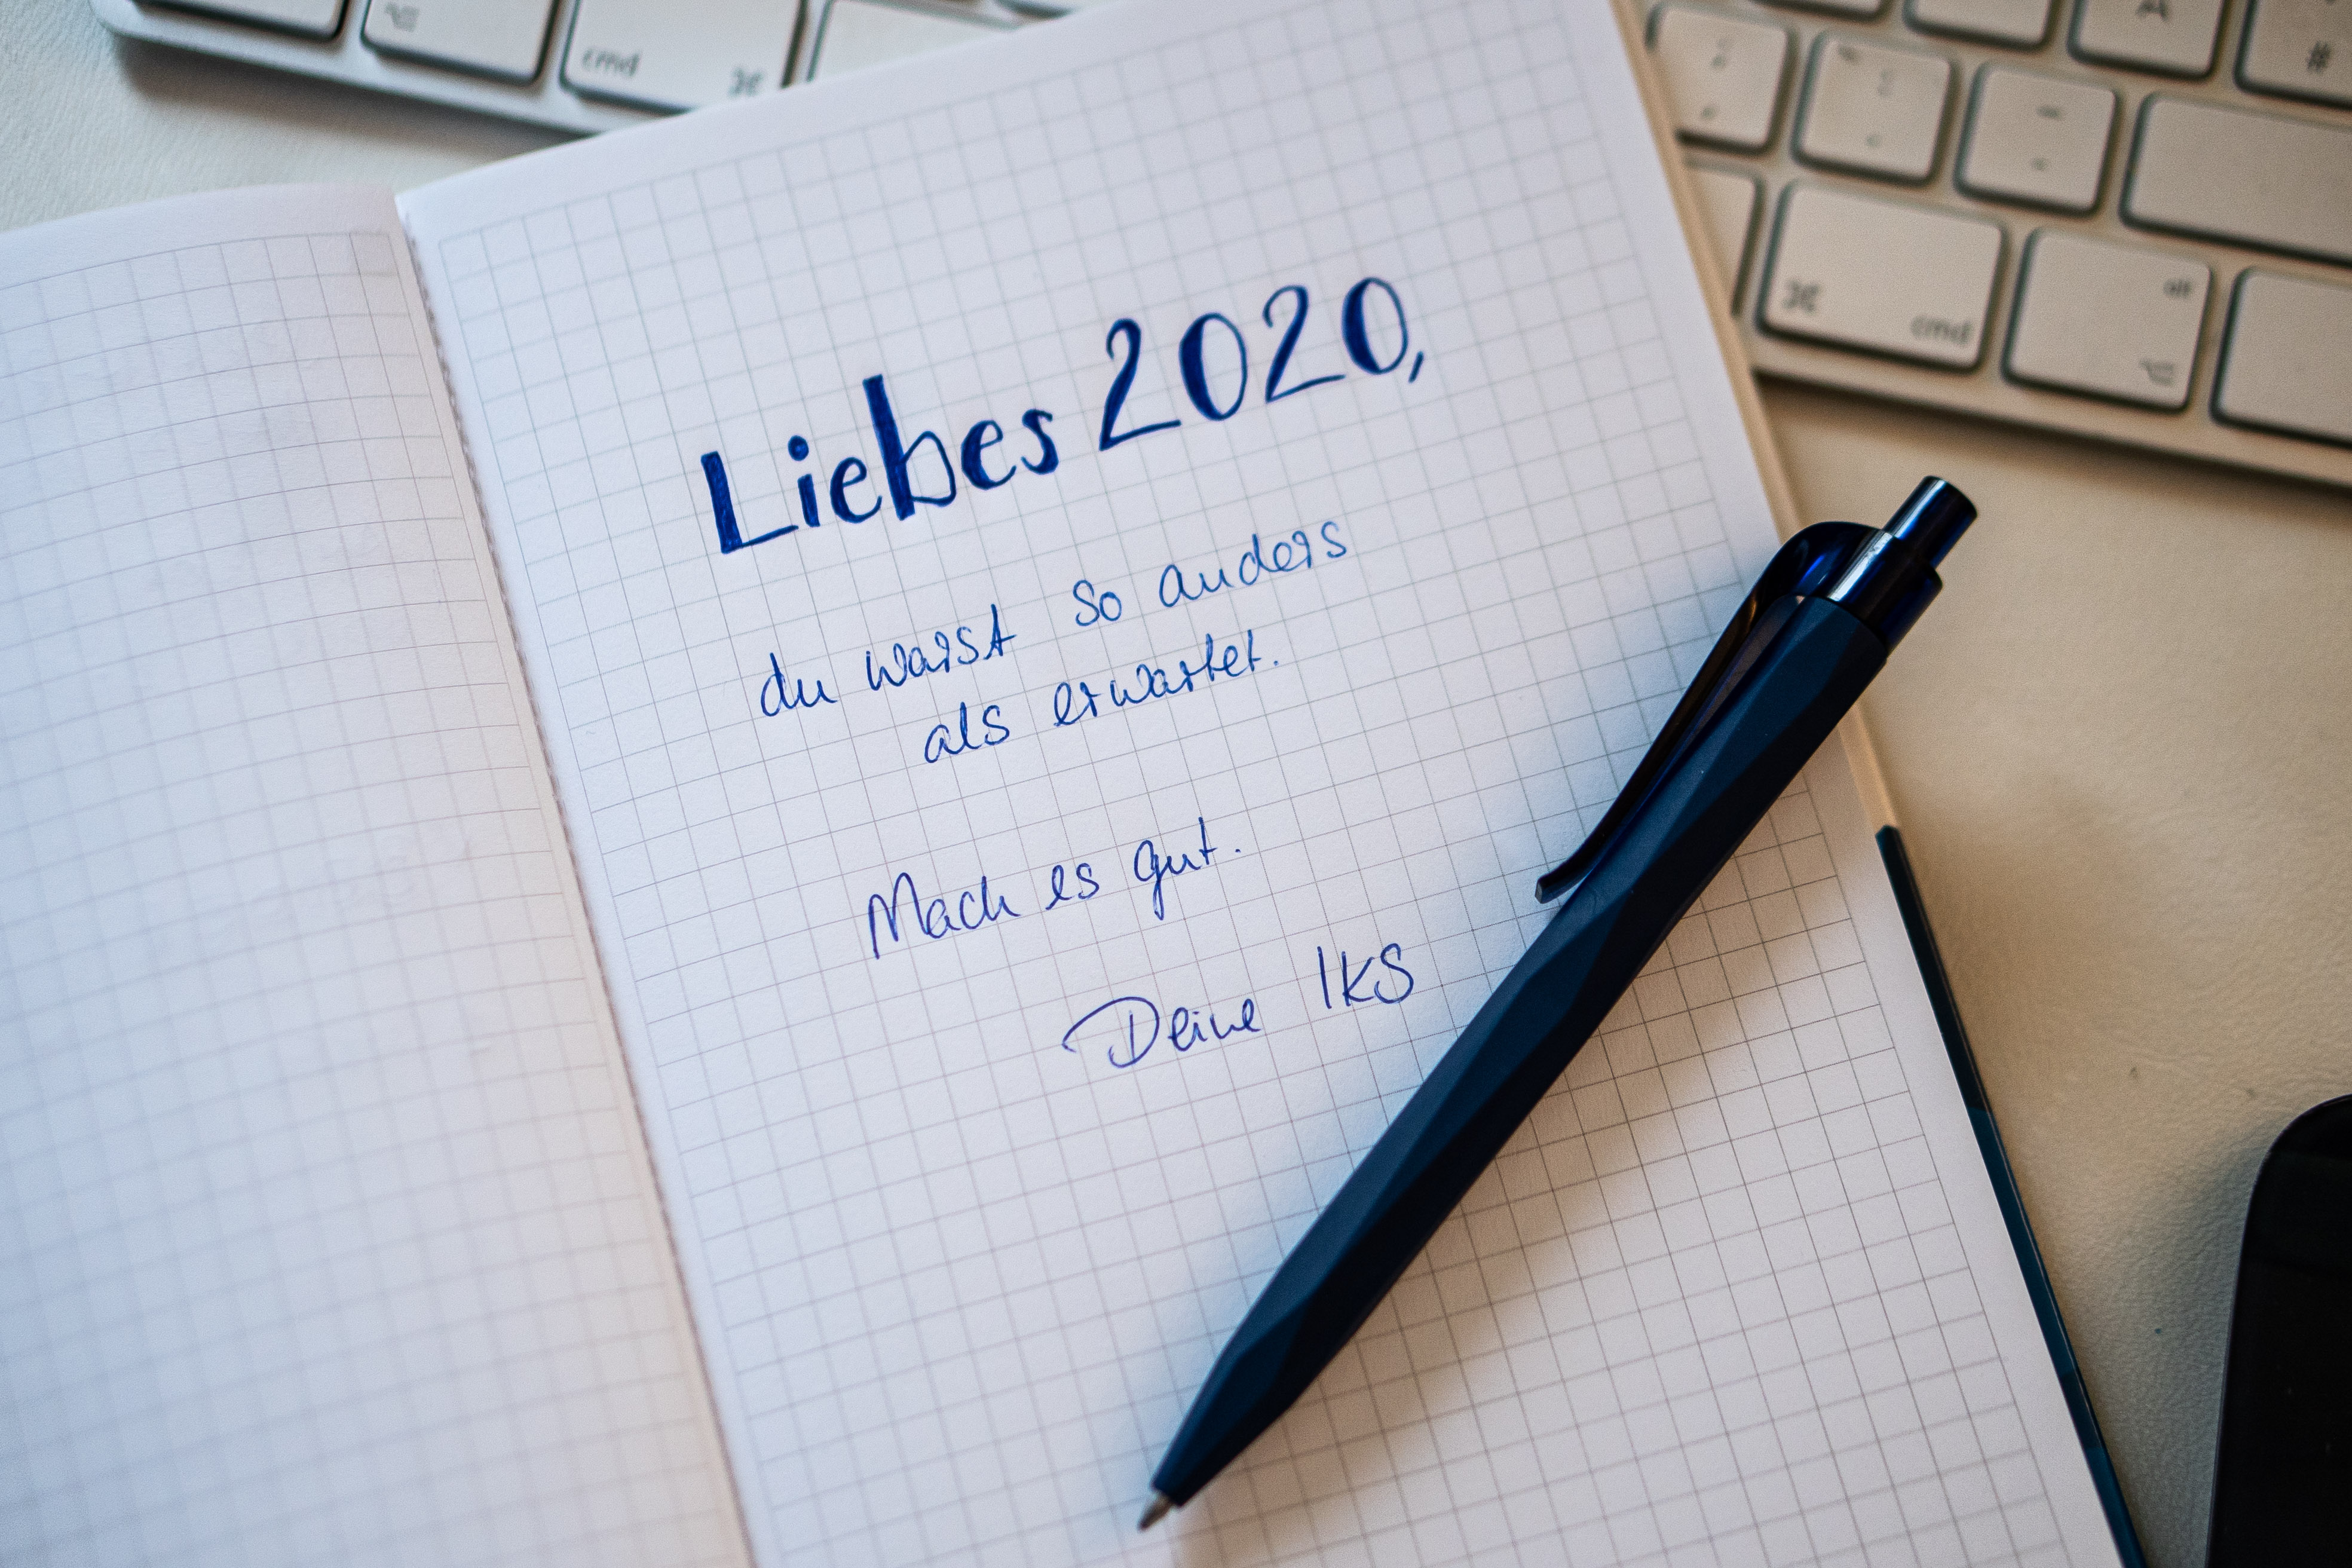 cmd
⌘
A
#
⌘
cmd
alt
⌥
Liebes 2020,
du warst so anders
als erwartet.
Mach es gut.
Deine IKS